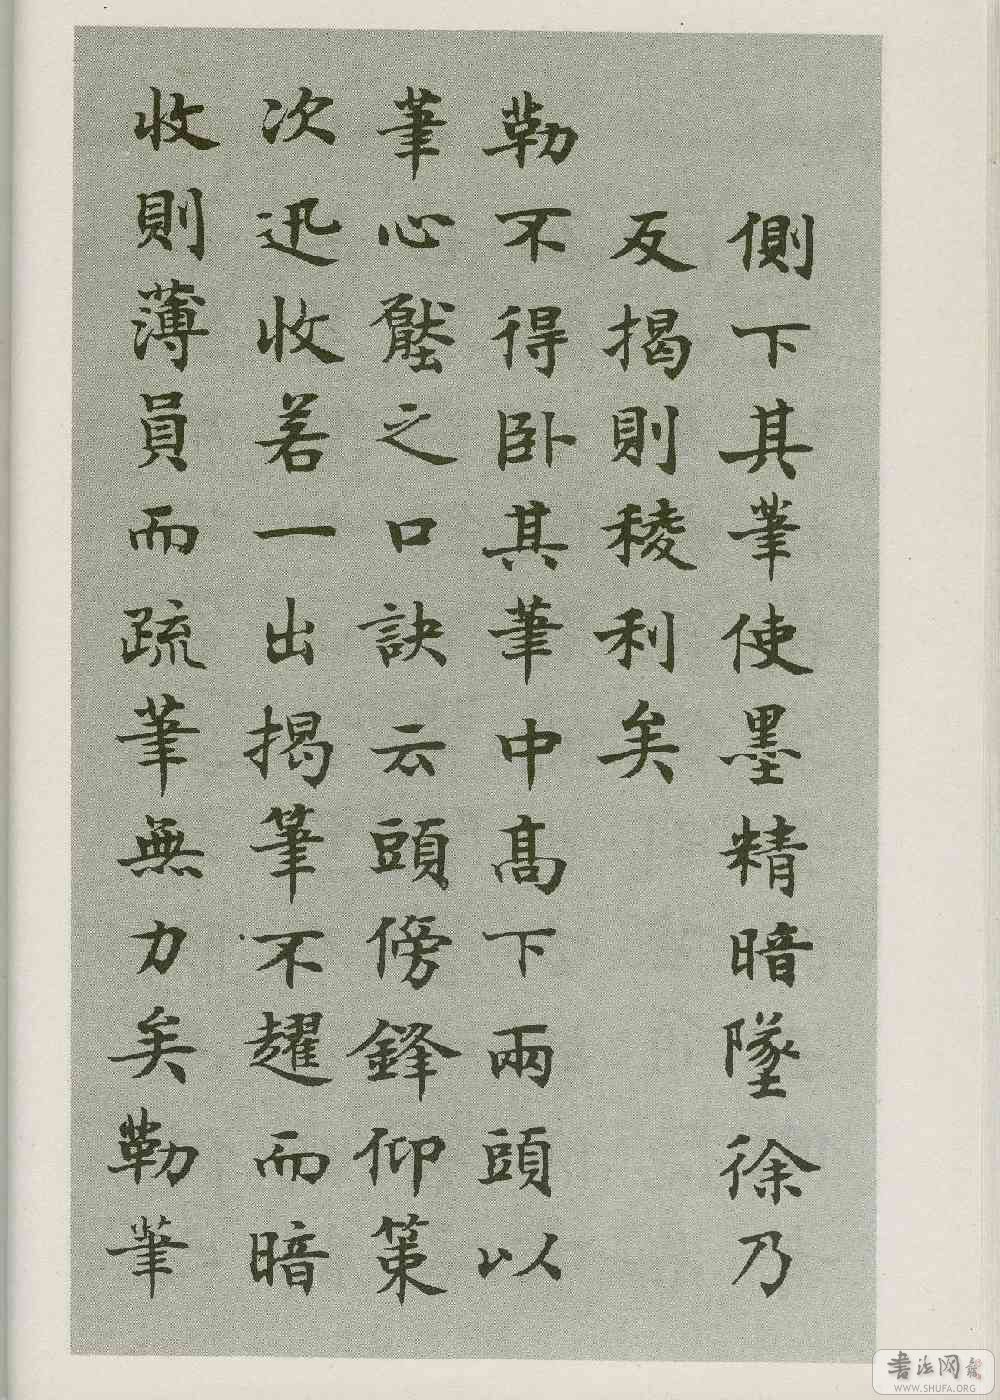 側下其筆使墨精暗墜徐乃
反揭則稜利矣
勒不得卧其筆中高下兩頭以
筆心壓之口訣云頭傍鋒仰策
次迅收若一出揭筆不趯而暗
收則薄員而疏筆無力矣勒筆
书法网
WWW.SHUFA.ORG